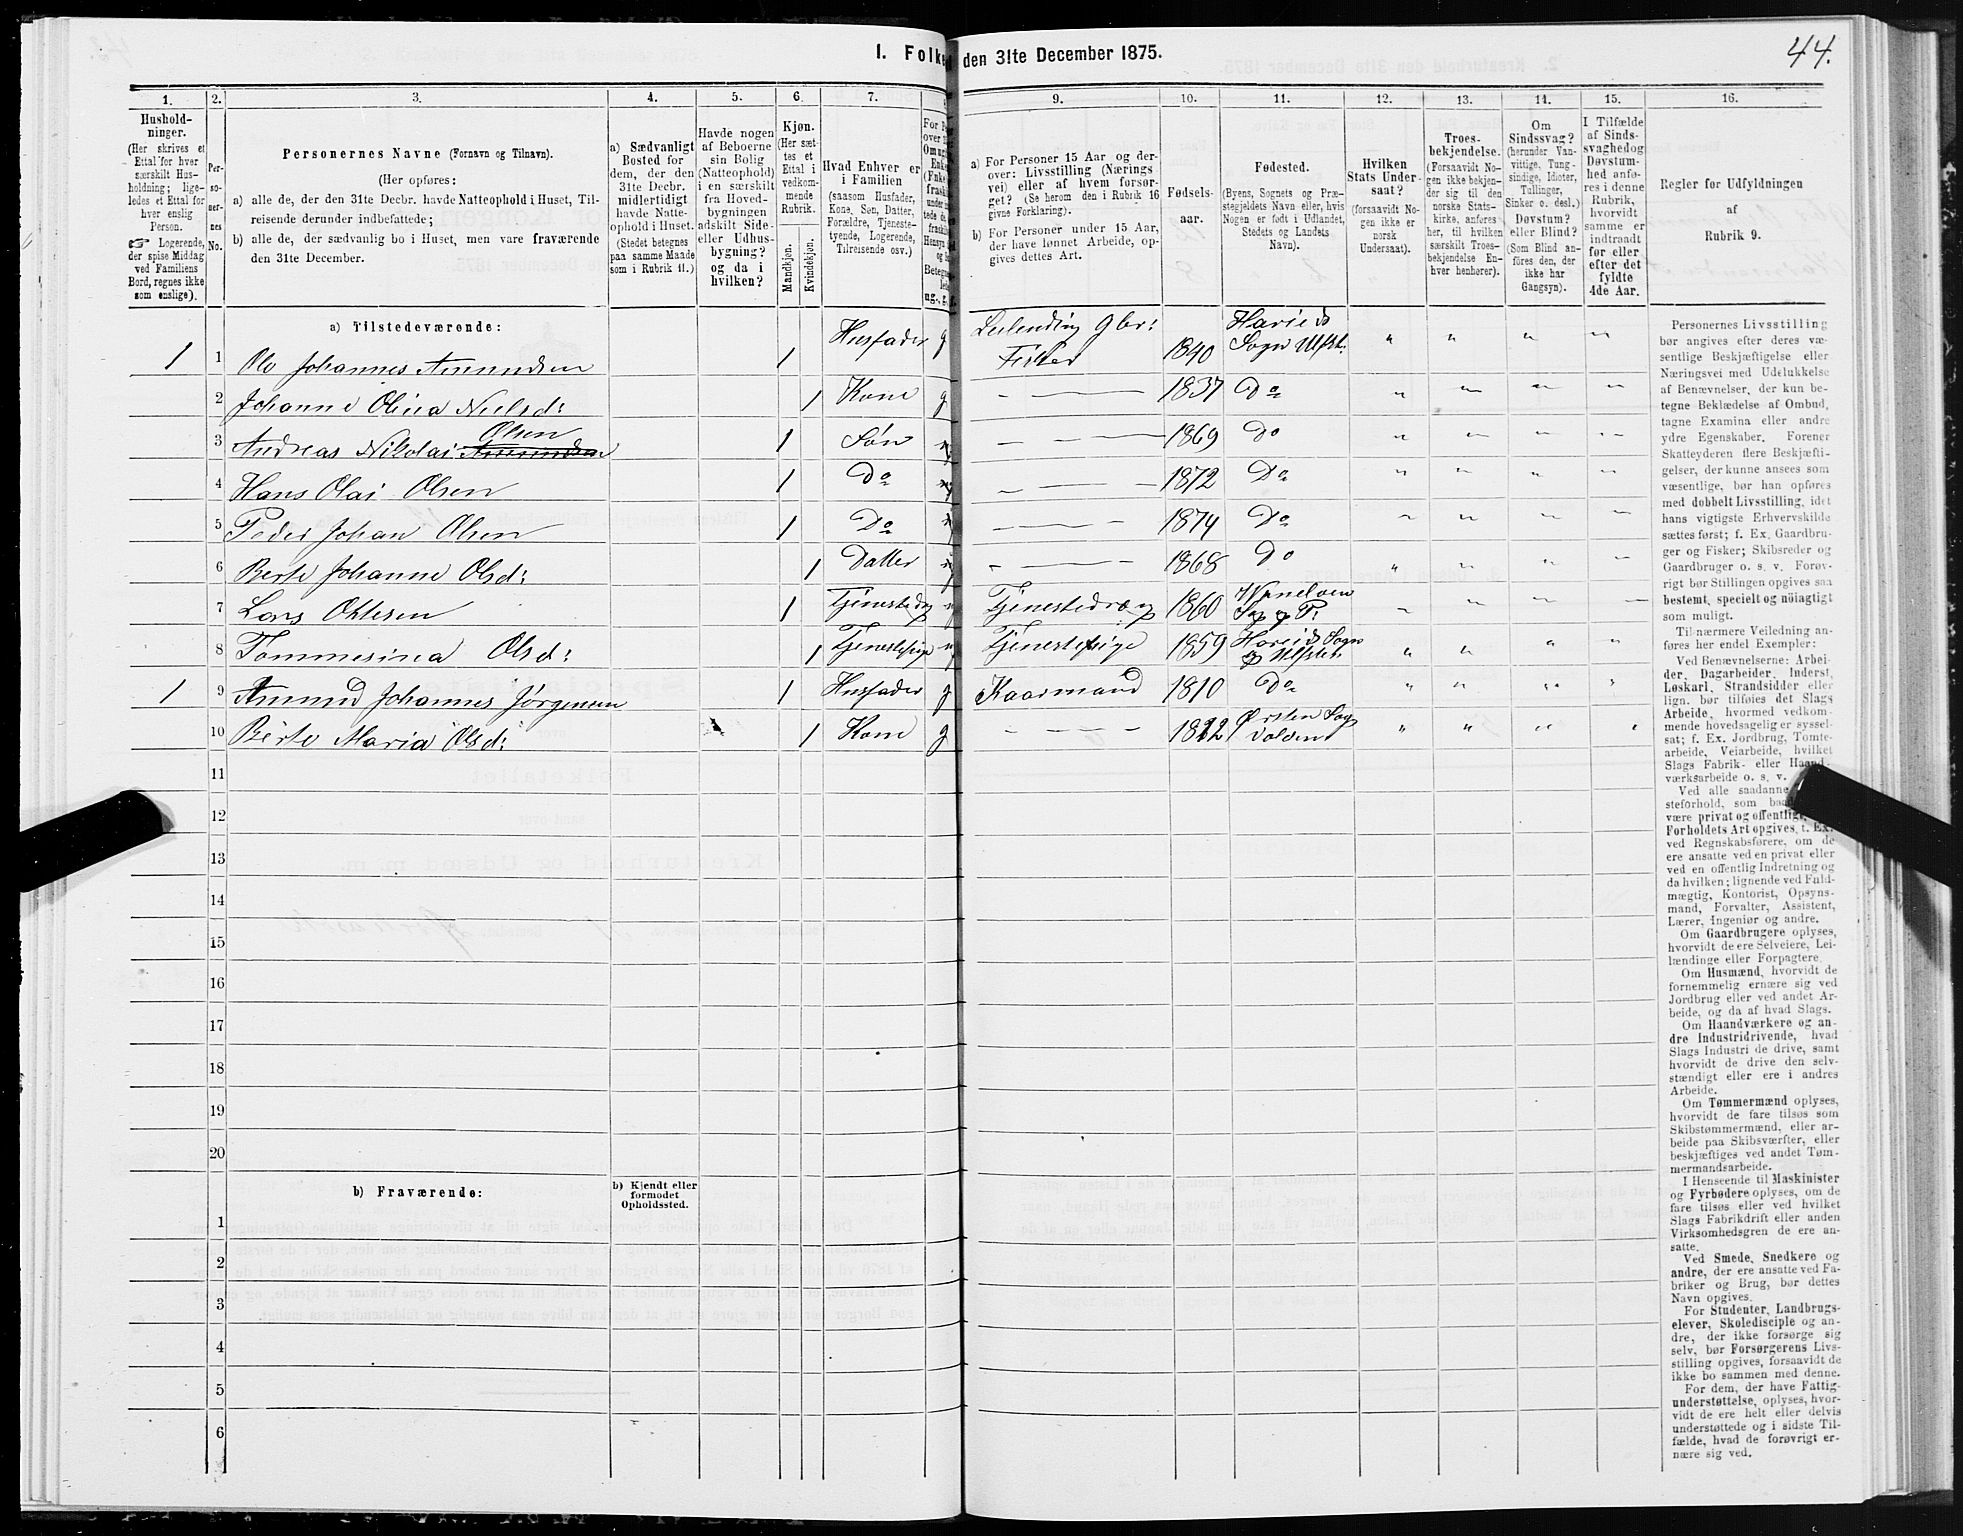 I. Folke
den 31te December 1875.
44.
1.
2.
3.
4.
5.
6.
7.
9.
10.
11.
12.
13.
14.
15.
16.
Hushold-
ninger.
(Her skrives et
Ettal for hver
særskilt Hus-
holdning; lige-
ledes et Ettal for
hver enslig
Person.
☞ Logerende,
der spise Middag
ved Familiens
Bord, regnes ikke
som enslige).
Per-
so-
ner-
nes
No.
Personernes Navne (Fornavn og Tilnavn).
(Her opføres:
a) alle de, der den 31te Decbr. havde Natteophold i Huset, Til-
reisende derunder indbefattede;
b) alle de, der sædvanlig bo i Huset, men vare fraværende
den 31te December.
a) Sædvanligt
Bosted for
dem, der den
31te Decbr.
midlertidigt
havde Natte-
ophold i Huset.
(Stedet betegnes
paa samme Maade
som i Rubrik 11.)
Havde nogen
af Beboerne
sin Bolig
(Natteophold)
i en særskilt
fra Hoved-
bygningen
adskilt Side-
eller Udhus-
bygning?
og da i
hvilken?
Kjøn.
(Her sæt-
tes et
Ettal i
vedkom-
mende
Rubrik.
Mandkjøn.
Kvindekjøn.
Hvad Enhver er
i Familien
(saasom Husfader,
Kone, Søn, Datter,
Forældre, Tjeneste-
tyende, Logerende,
Tilreisende osv.)
a) For Personer 15 Aar og der-
over: Livsstilling (Nærings-
vei) eller af hvem forsør-
get? (Se herom den i Rubrik 16
givne Forklaring).
b) For Personer under 15 Aar,
der have lønnet Arbeide, op-
gives dettes Art.
Fødsels-
aar.
Fødested.
(Byens, Sognets og Præ-
stegjeldets Navn eller, hvis
Nogen er født i Udlandet,
Stedets og Landets
Navn).
Hvilken
Stats Under-
saat?
(forsaavidt No-
gen ikke er
norsk
Undersaat).
Troes-
bekjendelse.
(Forsaavidt No-
gen ikke bekjen-
der sig til den
norske Stats-
kirke, anføres
her, til hvilken
særskilt Troes-
bekjendelse En-
hver henhører).
Om
Sindssvag?
(herunder Van-
vittige, Tung-
sindige, Idioter,
Tullinger,
Sinker o. desl.)
Døvstum?
eller Blind?
(Som Blind an-
føres den, der
ikke har
Gangsyn).
I Tilfælde
af Sinds-
svaghed og
Døvstum-
hed anfø-
res i denne
Rubrik,
hvorvidt
samme er
indtraadt
før eller
efter det
fyldte
4de Aar.
Regler for Udfyldningen
af
Rubrik 9.
a) Tilstedeværende:
1 1 Ole Johannes Amundsen 1 Husfader g Leilending Gbr: Fisker 1840 Hareids Sogn Ulfst:
2 Johanne Olina Nielsd: 1 Kone g 1837 Do
3 Andreas Nikolai Olsen 1 Søn 1869 Do
4 Hans Olai Olsen 1 Do 1872 Do
5 Peder Johan Olsen 1 Do 1874 Do
6 Berte Johanne Olsd: 1 Datter 1868 Do
7 Lars 1 Tjenestedræng 1860
8 Tommesina Olsd: 1 Tjenestepige Tjenestepige 1859 Hareids Sogn
1 9 Amund Johannes Jørgensen 1 Husfader g Kaarmand 1810 Do
10 Berte Maria Olsd: 1 Kone g 1812 Ørsten Sogn Volden
11
12
13
14
15
16
17
18
19
20
b) Fraværende:
b) Kjendt eller
formodet
Opholdssted.
1
2
3
4
5
6
Personernes Livsstilling
bør angives efter deres væ-
sentlige Beskjæftigelse eller
Næringsvei med Udelukkelse
af Benævnelser, der kun be-
tegne Beklædelse af Ombud,
tagne Examina eller andre
ydre Egenskaber. Forener
Skatteyderen flere Beskjæfti-
gelser, der kunne ansees som
væsentlige, bør han opføres
med dobbelt Livsstilling, idet
hans vigtigste Erhvervskilde
sættes først; f. Ex. Gaardbru-
ger og Fisker; Skibsreder og
Gaardbruger o. s. v. Forøv-
rigt bør Stillingen opgives saa
bestemt, specielt og nöiagtigt
som muligt.
Til nærmere Veiledning an-
føres her endel Exempler:
Ved Benævnelserne: Arbei-
der, Dagarbeider, Inderst,
Løskarl, Strandsidder eller
lign. bør tilføies det Slags
Arbeide, hvormed vedkom-
mende hovedsagelig er syssel-
sat; f. Ex. Jordbrug, Tomte-
arbeide, Veiarbeide, hvilket
Slags Fabrik- eller Haand-
værksarbeide o. s. v.
Ved alle saadanne
steforhold, som
være privat og offentligt,
Forholdets Art opgives, t. Ex.
ved Regnskabsførere, om de
ere ansatte ved en privat eller
ved en offentlig Indretning og
da hvilken; lignende ved Fuld-
mægtig, Kontorist, Opsyns-
mand, Forvalter, Assistent,
Lærer, Ingeniør og andre.
Om Gaardbrugere oplyses,
hvorvidt de ere Selveiere, Lei-
lændinge eller Forpagtere.
Om Husmænd, hvorvidt de
fornemmelig ernære sig ved
Jordbrug eller ved andet Ar-
beide, og da af hvad Slags.
Om Haandværkere og an-
dre Industridrivende, hvad
Slags Industri de drive, samt
hvorvidt de drive den selv-
stændigt eller ere i andres
Arbeide.
Om Tømmermænd oplyses,
hvorvidt de fare tilsøs som
Skibstømmermænd, eller ar-
beide paa Skibsværfter, eller
beskjæftiges ved andet Tøm-
mermandsarbeide.
I Henseende til Maskinister
og Fyrbødere oplyses, om de
fare tilsøs eller ved hvilket
Slags Fabrikdrift eller anden
Virksomhedsgren de ere an-
satte.
Ved Smede, Snedkere og
andre, der ere ansatte ved Fa-
briker og Brug, bør dettes
Navn opgives.
For Studenter, Landbrugs-
elever, Skoledisciple og an-
dre, der ikke forsørge sig
selv, bør Forsørgerens Livs-
stilling opgives, forsaavidt de
ikke bo sammen med denne.
For dem, der have Fattig-
understøttelse, oplyses, hvor-
vidt de ere helt eller delvis
understøttede og i sidste Til-
fælde, hvad de forøvrigt er-
nære sig ved.